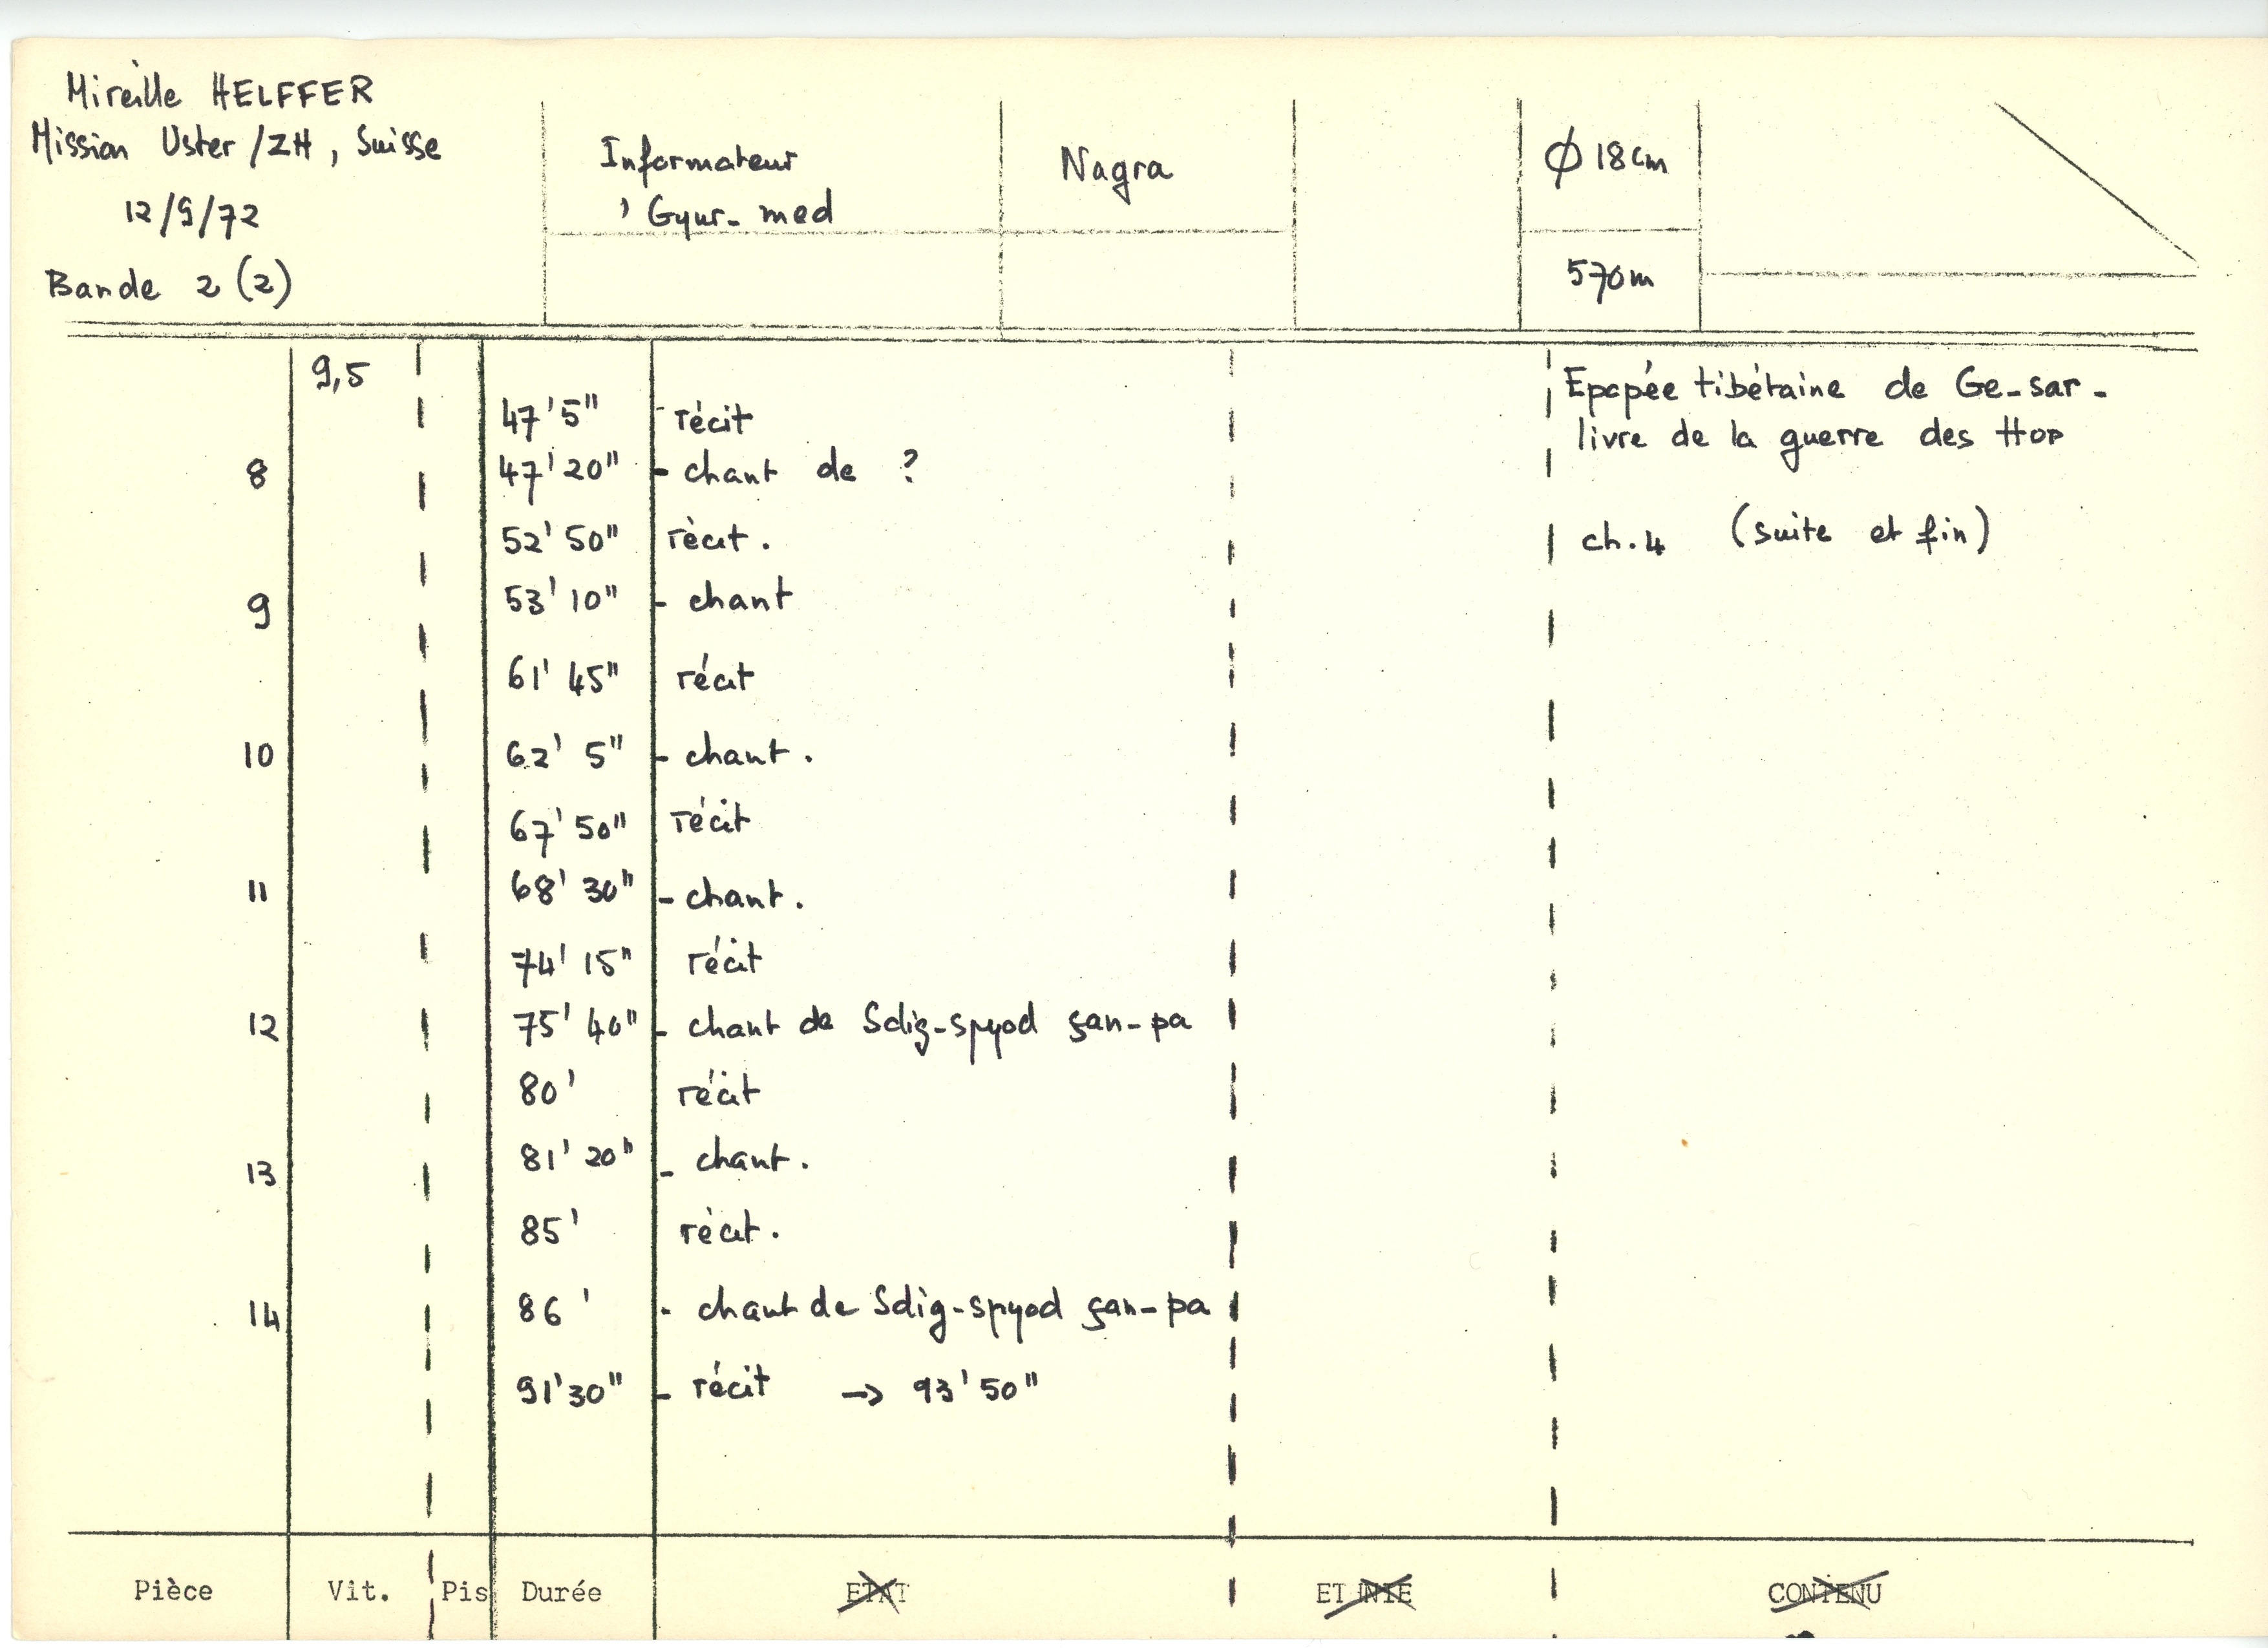 Mireille HELFFER
Mission Uster / ZH, Suisse
12/9/72
Bande 2 (2)
Informateur
' Gyur-med
Nagra
Ø 18 cm
570m
9,5
Epopée tibétaine de Ge-sar -
livre de la guerre des Hor
ch.4 (suite et fin)
47'5" - récit
8 47'20" - chant de ?
52'50" récit.
9 53'10" - chant
61'45" récit
10 62'5" - chant.
67'50" récit
11 68'30" - chant.
74'15" récit
12 75'40" - chant de Sdig-spyod šan-pa
80' récit
13 81'20" - chant.
85' récit.
14 86' - chant de Sdig-spyod šan-pa
91'30" - récit → 93'50"
Pièce Vit. Pis Durée ETAT ETHNIE CONTENU